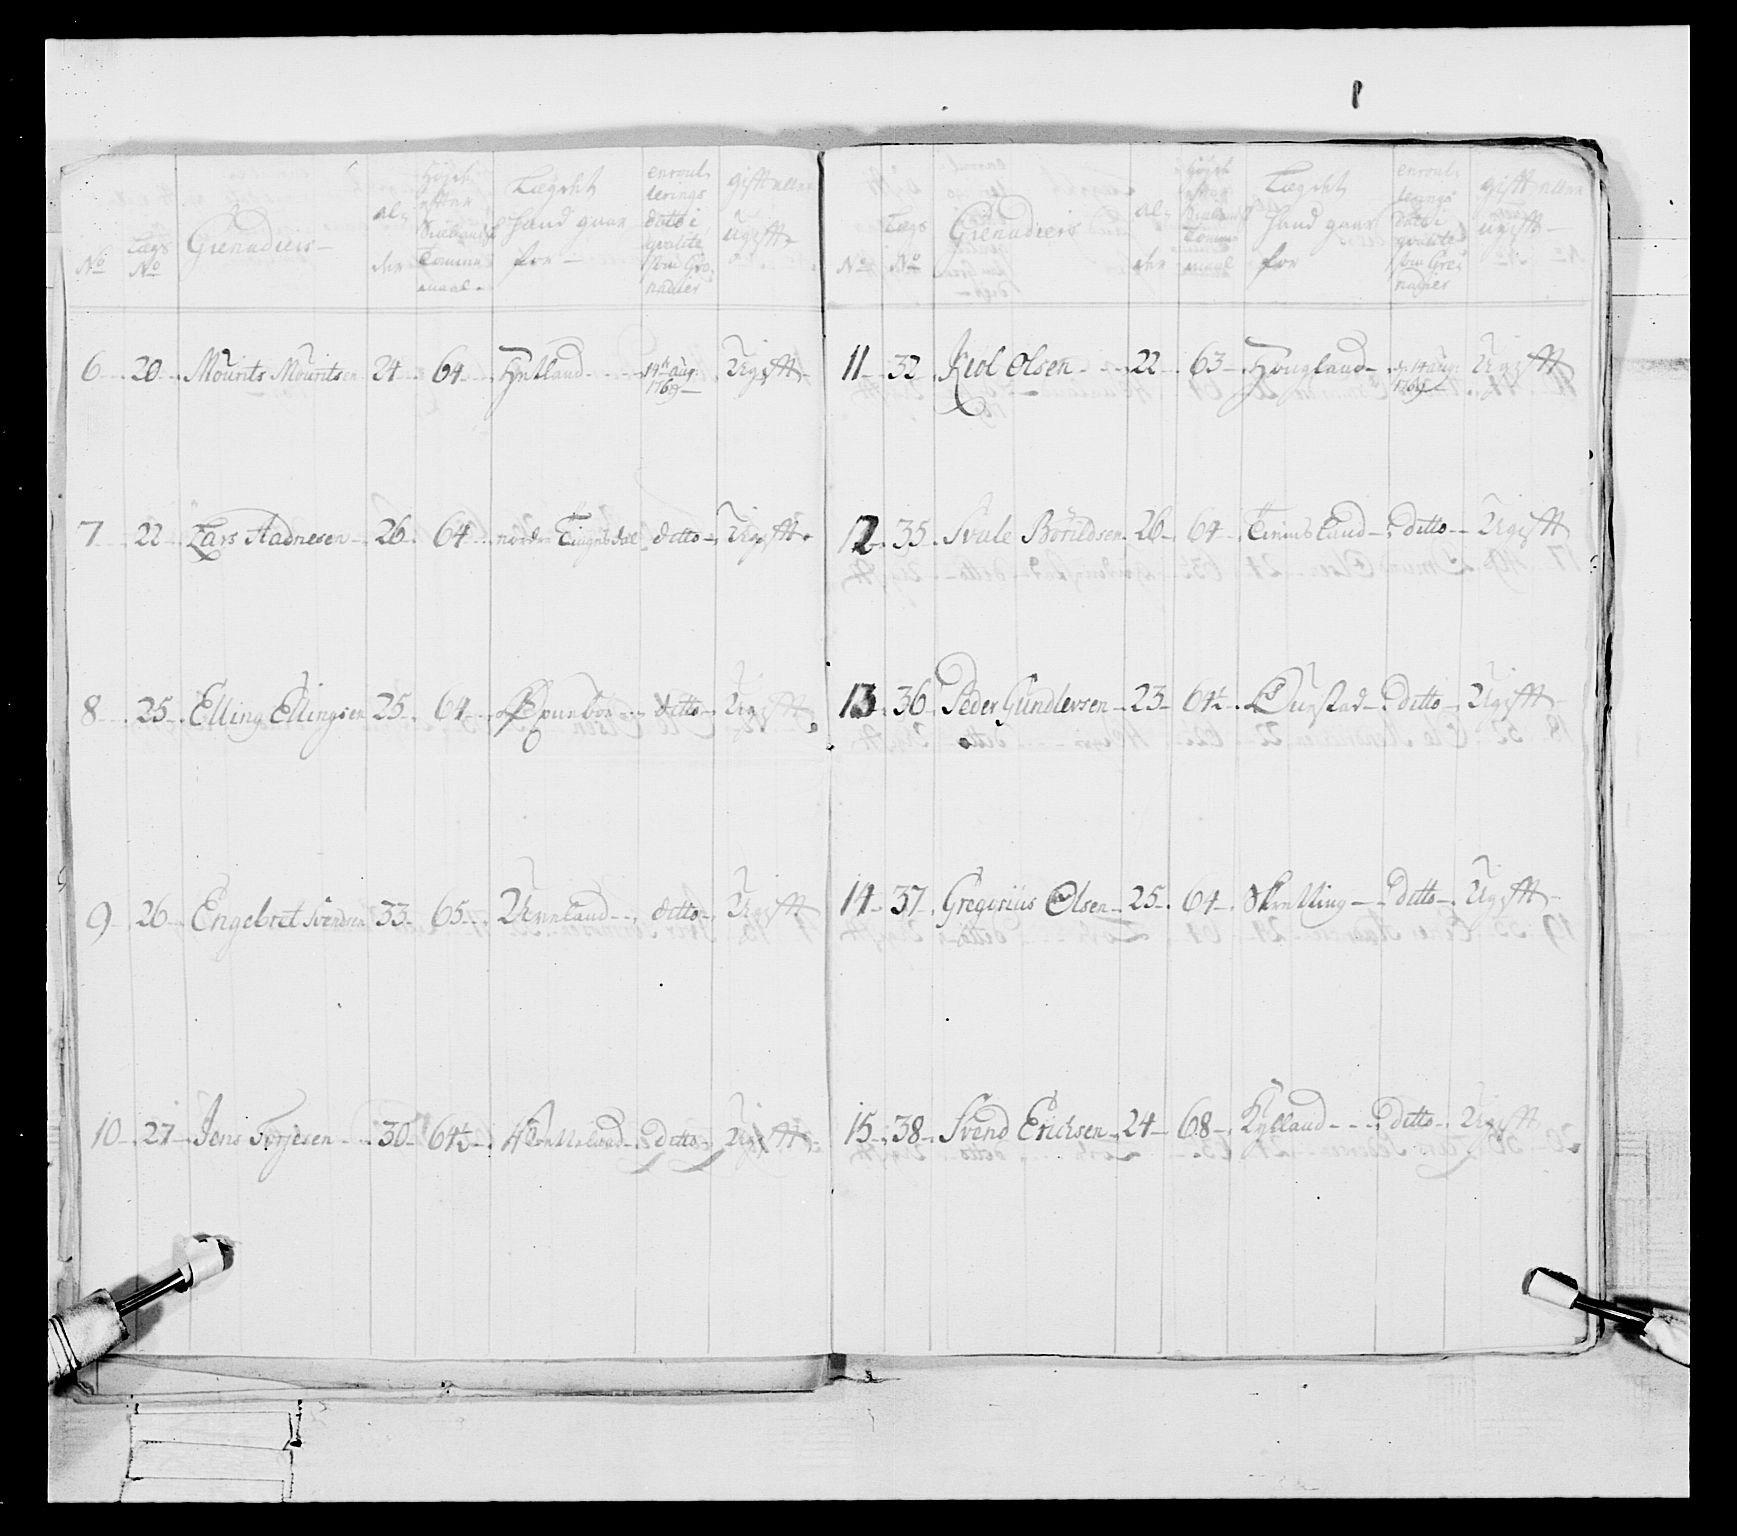 No
Lægs No
Grenadiers
Al-
der
Højde
efter
Tomme
maal
Lægdet
hand gaar
for
enroul-
lerings
datto i
qvalite
som Gre-
nadier
gift eller
Ugift
6 20 Mourits Mouritsen 24 64 14th aug: 1769 Ugift
7 22 Lars Aadnesen 26 64 ditto Ugift
8 25 Elling Ellingsen 25 64 ditto Ugift
9 26 Engebret Svendsen 33 65 ditto Ugift
10 27 Jens Torjesen 30 64½ ditto Ugift
No
Lægs No
Grenadiers
Al-
der
Højde
efter
Tomme
maal
Lægdet
hand gaar
for
enroul-
lerings
datto i
qvalite
som Gre-
nadier
gift eller
ugift
11 32 Kiol Olsen 22 63 Hougland 14 aug: 1769 Ugift
12 35 Svale Boruldsen 26 64 ditto Ugift
13 36 Peder Gundersen 23 64½ ditto Ugift
14 37 Gregorius Olsen 25 64 Skretting ditto Ugift
15 38 Svend Erichsen 24 68 Kylland ditto Ugift